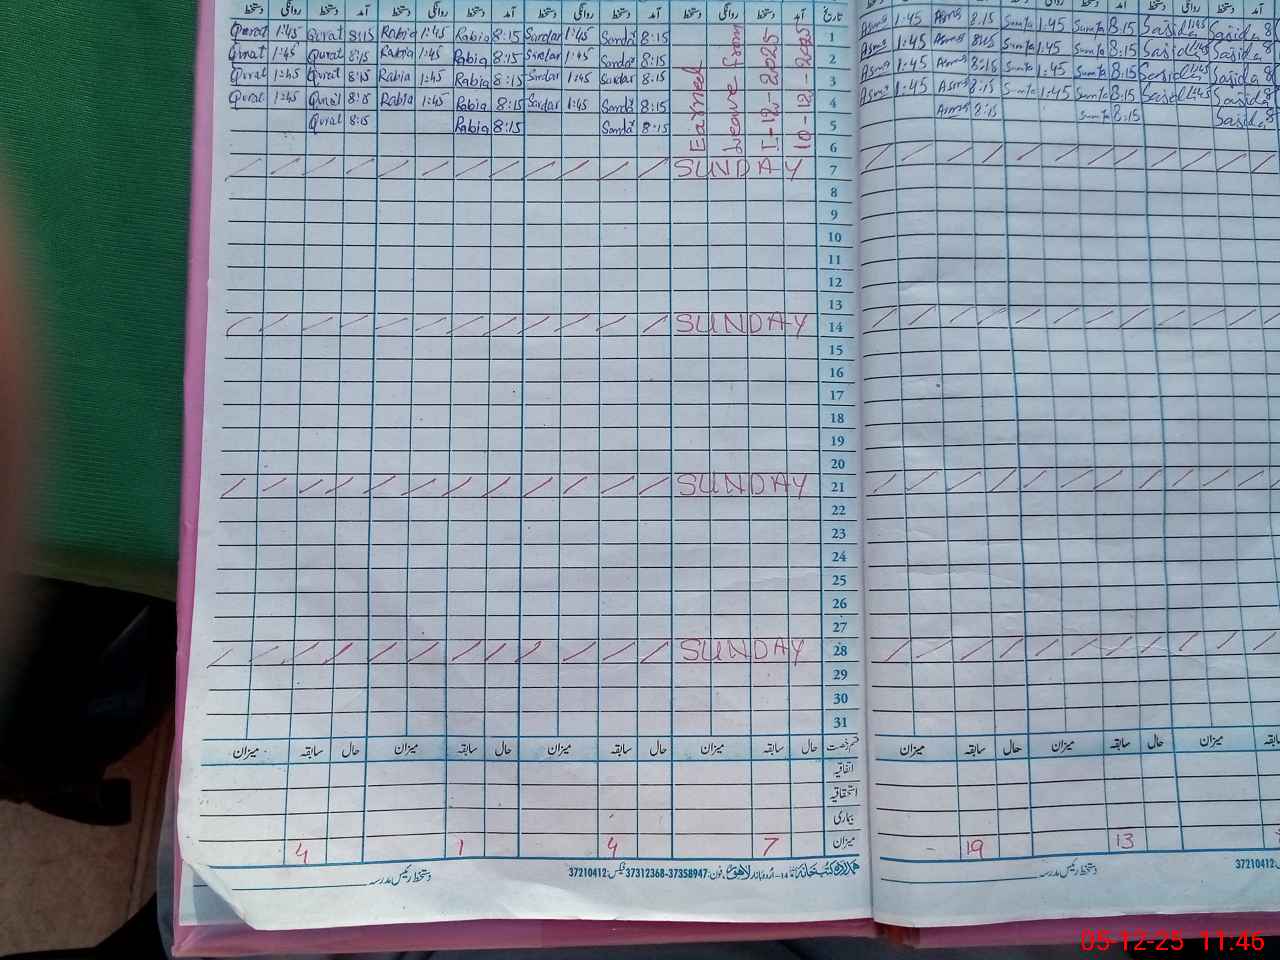 تاریخ آمد دستخط روانگی دستخط آمد دستخط روانگی دستخط آمد دستخط روانگی دستخط آمد دستخط روانگی دستخط
Qurat 1:45 Qurat 8:15 Rabia 1:45 Rabia 8:15 Sardar 1:45 Sardar 8:15 1 Asma 1:45 Asma 8:15 Sumta 1:45 Sumta 8:15 Sajida 1:45 Sajida 8
Qurat 1:45 Qurat 8:15 Rabia 1:45 Rabia 8:15 Sardar 1:45 Sardar 8:15 2 Asma 1:45 Asma 8:15 Sumta 1:45 Sumta 8:15 Sajida 1:45 Sajida 8
Qurat 1:45 Qurat 8:15 Rabia 1:45 Rabia 8:15 Sardar 1:45 Sardar 8:15 3 Asma 1:45 Asma 8:15 Sumta 1:45 Sumta 8:15 Sajida 1:45 Sajida 8
Qurat 1:45 Qurat 8:15 Rabia 1:45 Rabia 8:15 Sardar 1:45 Sardar 8:15 4 Asma 1:45 Asma 8:15 Sumta 1:45 Sumta 8:15 Sajida 1:45 Sajida 8
Qurat 8:15 Rabia 8:15 Sardar 8:15 5 Asma 8:15 Sumta 8:15 Sajida 8
Earned
Leave from
1-12-2025
10-12-2025
6
SUNDAY 7
8
9
10
11
12
13
SUNDAY 14
15
16
17
18
19
20
SUNDAY 21
22
23
24
25
26
27
SUNDAY 28
29
30
31
قسم رخصت حال سابقہ میزان حال سابقہ میزان حال سابقہ میزان حال سابقہ میزان
حال سابقہ میزان حال سابقہ میزان میزان
اتفاقیہ
استحقاقیہ
بیماری
میزان 7 4 1 4
19 13
دستخط رئیس مدرسہ
اردو بازار لاہور فون: 37312368-37358947 فیکس: 37210412
دستخط رئیس مدرسہ
37210412
05-12-25 11:46